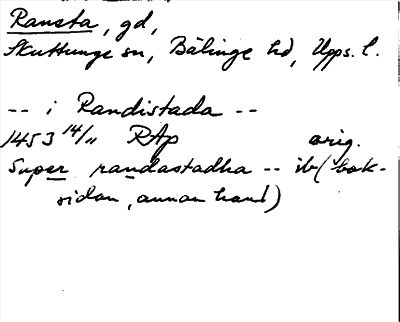 Ransta, gd,
Skuttunge sn, Bälinge hd, Upps. l.
-- i Randistada --
1453 14/11 RAp orig.
Super randastadha -- ib (bak-
sidan, annan hand)